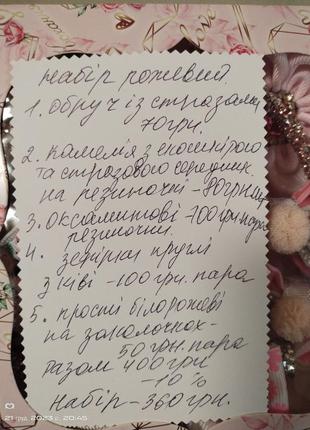 Набір рожевий
1. обруч із стразами
70грн.
2. камелія з екошкірого
та стразового середник.
на резиночкі - 80грн
3. оксамитові 100грн пара
резиночки.
4. зефірки пруглі
з ківі - 100 грн. пара
5. прості білорожеві
на заколочках -
50 грн. пара
разом 400 грн
-10%
набір - 360 грн.
21 гру. 2023 г. 20:45